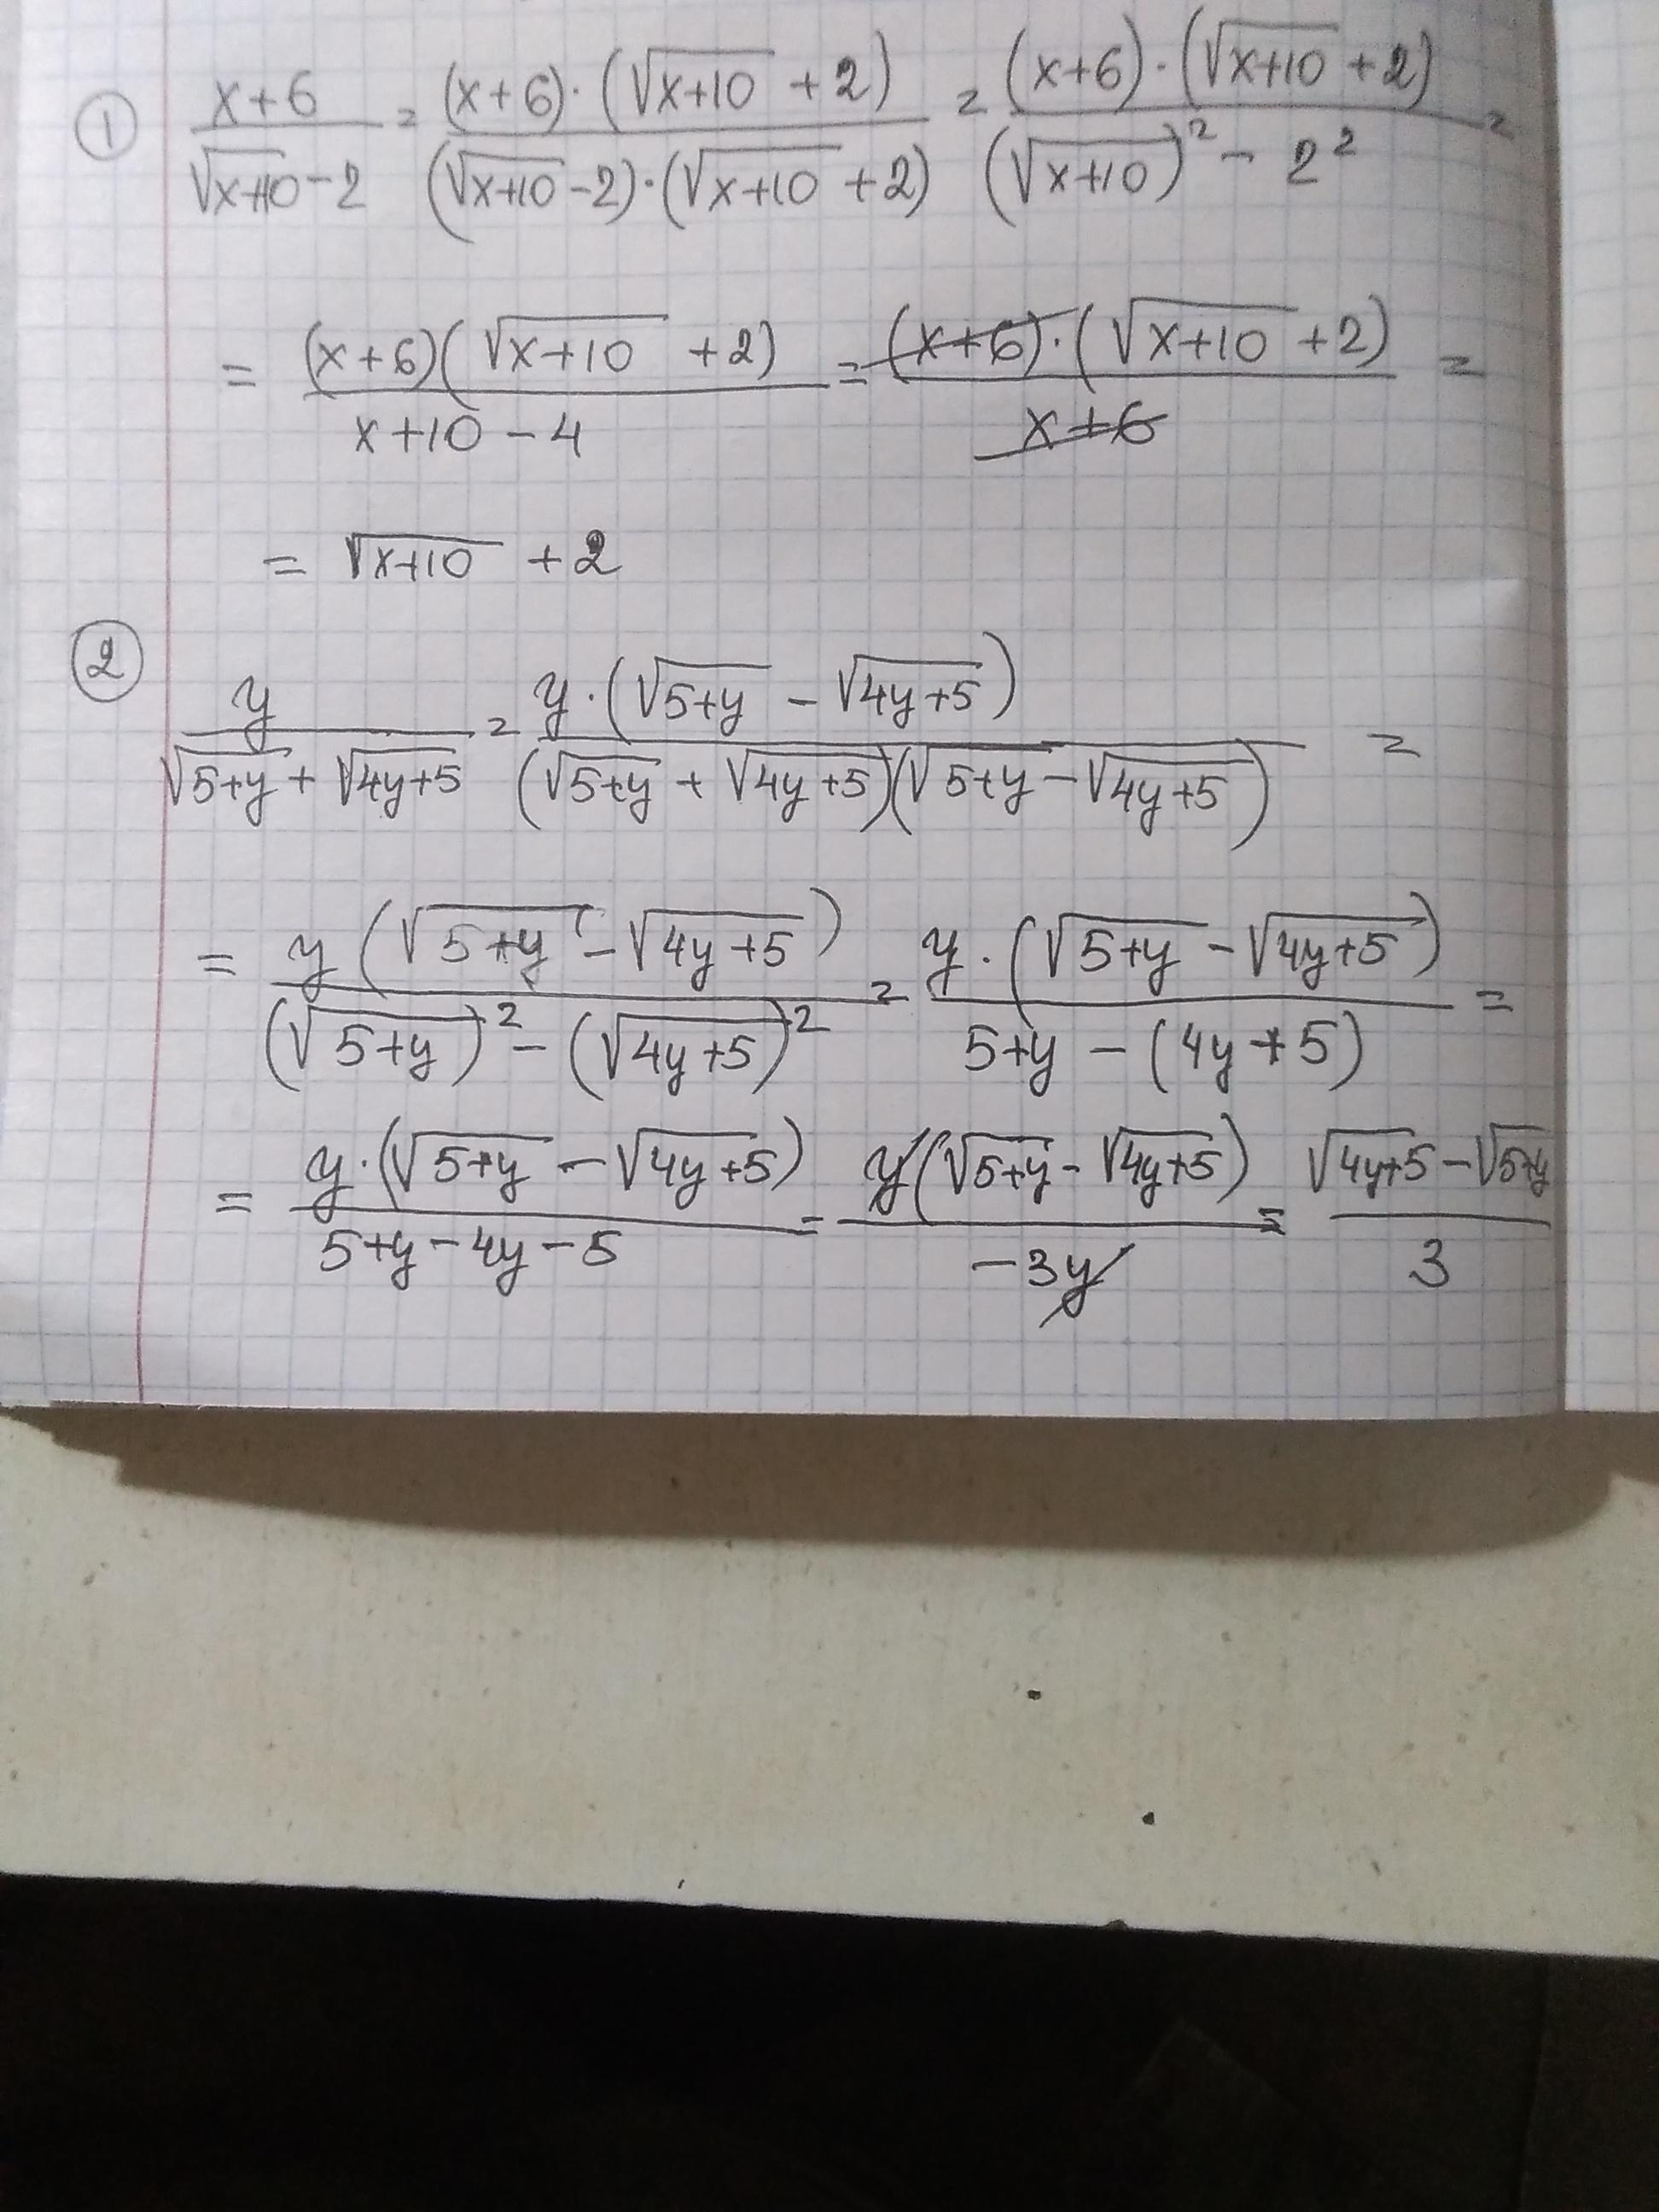 ① (x+6)/(√(x+10) -2) = ((x+6)·(√(x+10) +2))/((√(x+10) -2)·(√(x+10) +2)) = ((x+6)·(√(x+10) +2))/((√(x+10))² - 2²) =
= ((x+6)(√(x+10) +2))/(x+10-4) = ((x+6)·(√(x+10) +2))/(x+6) =
= √(x+10) +2
② y/(√(5+y) + √(4y+5)) = (y·(√(5+y) - √(4y+5)))/((√(5+y) + √(4y+5))(√(5+y) - √(4y+5))) =
= (y(√(5+y) - √(4y+5)))/((√(5+y))² - (√(4y+5))²) = (y·(√(5+y) - √(4y+5)))/(5+y - (4y+5)) =
= (y·(√(5+y) - √(4y+5)))/(5+y-4y-5) = (y(√(5+y) - √(4y+5)))/(-3y) = (√(4y+5) - √(5+y))/3